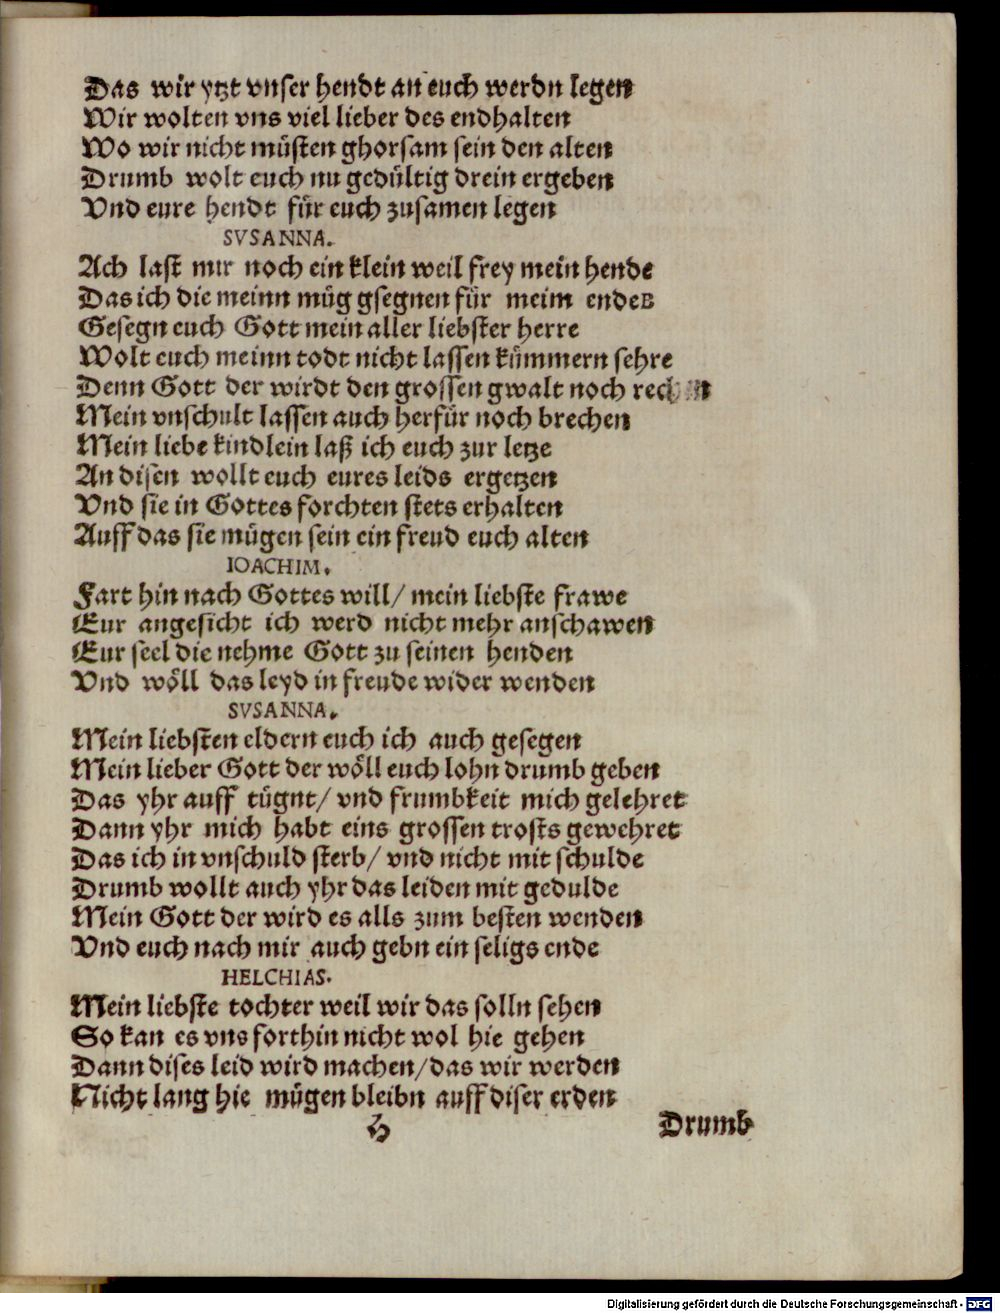 Das wir ytzt vnser hendt an euch werdn legen
Wir wolten vns viel lieber des endhalten
Wo wir nicht müsten ghorsam sein den alten
Drumb wolt euch nu gedültig drein ergeben
Vnd eure hendt für euch zusamen legen
SVSANNA.
Ach last mir noch ein klein weil frey mein hende
Das ich die meinn müg gsegnen für meim ende
Gesegn euch Gott mein aller liebster herre
Wolt euch meinn todt nicht lassen kümmern sehre
Denn Gott der wirdt den grossen gwalt noch
Mein vnschult lassen auch herfür noch brechen
Mein liebe kindlein laß ich euch zur letze
An disen wollt euch eures leids ergetzen
Vnd sie in Gottes forchten stets erhalten
Auff das sie mügen sein ein freud euch alten
IOACHIM.
Fart hin nach Gottes will/ mein liebste frawe
Eur angesicht ich werd nicht mehr anschawen
Eur seel die nehme Gott zu seinen henden
Vnd wöll das leyd in freude wider wenden
SVSANNA.
Mein liebsten eldern euch ich auch gesegen
Mein lieber Gott der wöll euch lohn drumb geben
Das yhr auff tügnt/ vnd frumbkeit mich gelehret
Dann yhr mich habt eins grossen trosts gewehret
Das ich in vnschuld sterb/ vnd nicht mit schulde
Drumb wollt auch yhr das leiden mit gedulde
Mein Gott der wird es alls zum besten wenden
Vnd euch nach mir auch gebn ein seligs ende
HELCHIAS.
Mein liebste tochter weil wir das solln sehen
So kan es vns forthin nicht wol hie gehen
Dann dises leid wird machen/ das wir werden
Nicht lang hie mügen bleibn auff diser erden
H Drumb
Digitalisierung gefördert durch die Deutsche Forschungsgemeinschaft - DFG